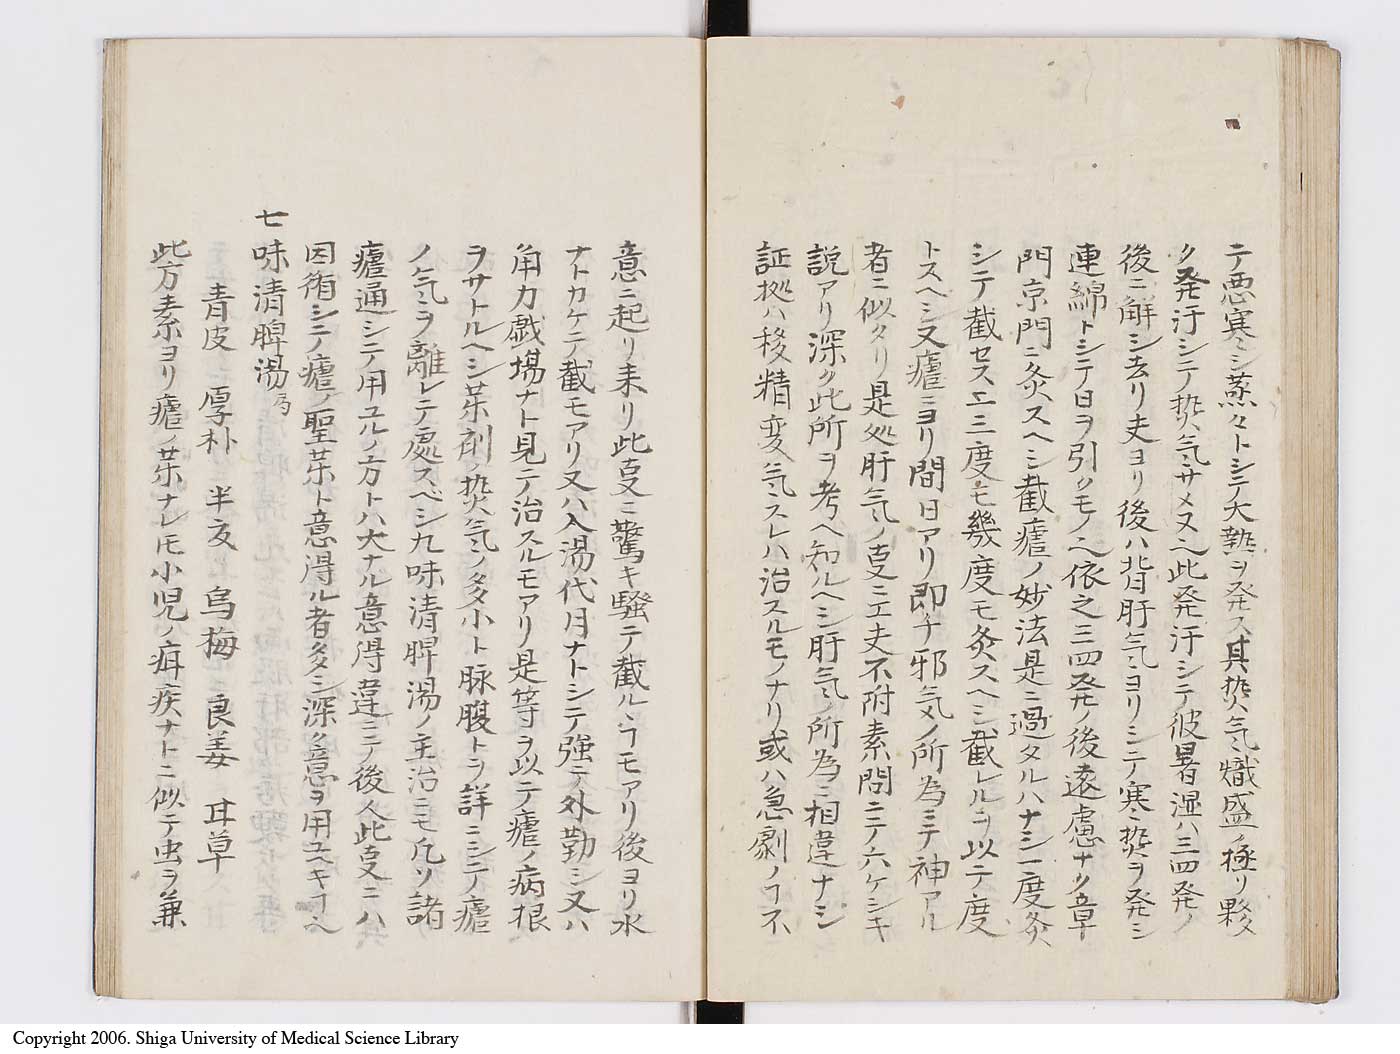 テ悪寒シ蒸々トシテ大熱ヲ発ス其熱気熾盛ノ極リ夥
ク発汗シテ熱気サメ又ヘ此発汗シテ彼暑湿ハ三四発ノ
後ニ解シ去リ夫ヨリ後ハ背肝気ヨリシテ寒熱ヲ発シ
連綿トシテ日ヲ引クモノヘ依之三四発ノ後遠慮ナク章
門京門ニ灸スヘシ截瘧ノ妙法是ニ過タルハナシ一度灸
シテ截セスニ三度モ幾度モ灸スヘシ截レルヲ以テ度
トスヘシ又瘧ニヨリ間日アリ即チ邪気ノ所為ニテ神アル
者ニ似タリ是処肝気ノ㕝ニ工夫不附素問ニテ六ケシキ
説アリ深ク此所ヲ考ヘ知ルヘシ肝気ノ所為ニ相違ナシ
証拠ハ移精変気スレハ治スルモノナリ或ハ急劇ノヿ不
意ニ起リ来リ此㕝ニ驚キ騒テ截ルヽヿモアリ後ヨリ水
ナトカケテ截モアリ又ハ入湯代月ナトシテ強テ外勤シ又ハ
角力戯場ナト見テ治スルモアリ是等ヲ以テ瘧ノ病根
ヲサトルヘシ茶剤ノ熱気ノ多少ト脉腹トヲ詳ニシテ瘧
ノ気ヲ離レテ處スベシ九味清脾湯ノ主治ニモ凡ソ諸
瘧通シテ用ユルノ方トハ大ナル意得違ニテ後人此㕝ニハ
因循シテ瘧ノ聖茶ト意得ル者多シ深ク意ヲ用ユヘキヿヘ
七味清脾湯 局
青皮 厚朴 半夏 烏梅 良姜 甘草
此方素ヨリ瘧ノ茶ナレ𪜈小児ノ疳疾ナトニ似テ虫ヲ兼
Copyright 2006. Shiga University of Medical Science Library